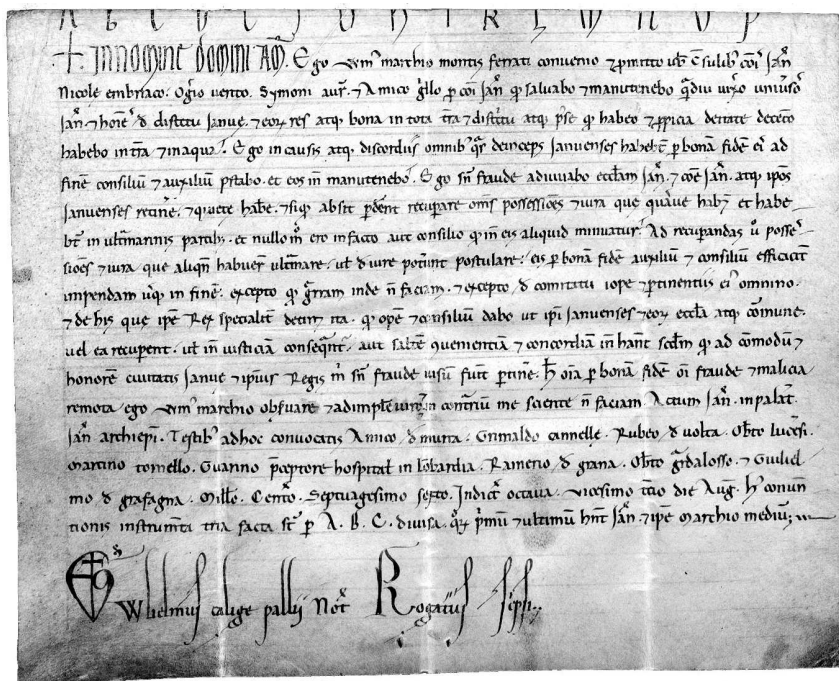 A B C D E F G H I K L M N O P
+ IN NOMINE DOMINI AM̃. Ego Wm̃ marchio montis ferrati convenio ⁊ ꝓmitto vob̃ ↄ̃sulib; cõĩs Jañ
Nicole embriaco. Ogʼio vento. Symoni aur̃. ⁊ Amico gʼllo ꝑ cõi Jañ qđ salvabo ⁊ manutenebo
Jañ. ⁊ hoñes đ districtu Januę. ⁊ eoꝝ res atq; bona in tota tr̃a
habebo in tr̃a ⁊ in aqua. Ego in causis atq; discordiis omnib; qʼs deinceps Januenses habebũt ꝑ bonã fidẽ eis ad
finẽ consiliũ ⁊ auxiliũ pʼstabo. et eos iñ manutenebo. Ego sñ fraude adiuvabo eccl̃am Jañ. ⁊ cõe Jañ. atq; ipõs
Januenses retinẽ. ⁊ quiete habẽ. ⁊ siqđ absit ꝑdẽnt recuperare oms̃ possessiões ⁊ iura que habꝫ et habe-
bt̃ in ultʼmarinis partib;. et nullo mõ ero in facto aut consilio qđ iñ eis aliquid minuatur. Ad recupandas ũ posses-
siões ⁊ iura que aliqñ habuer̃ ultʼmare. ul̃ đ iure potũnt postulare. eis ꝑ bonã fidẽ auxiliũ ⁊ consiliũ efficacit̃
impendam usq; in finẽ. excepto qđ gʼrram inde ñ faciam. ⁊ excepto đ comitatu iope ⁊ ꝑtinentiis eiʼ omnino.
⁊ de his que ipẽ Rex specialit̃ detin& ita. qđ opẽ ⁊ consiliũ dabo ut ipĩ Januenses ⁊ eoꝝ eccl̃a atq; cõmune.
vel ea recupent. ul̃ iñ iusticiã conseqʼnt̃. aut saltẽ ↄvenientiã ⁊ concordiã iñ hañt scđm qđ ad cõmodũ ⁊
honorẽ civitatis Januę ⁊ ipĩus Regis m̃ sñ fraude visũ fuit ꝑtinẽ. H̃ oĩa ꝑ bonã fidẽ oĩ fraude ⁊ malicia
remota ego Wm̃ marchio obs̃vare ⁊ adimplẽ contʼriũ me sciente ñ faciam. Actum Jañ. in palat̃.
Jañ archiepĩ. Testib; ad hoc convocatis Amico. đ murta. Grimaldo cannelle. Rubeo. đ volta. Obt̃o lucẽsi.
Martino tornello. Guarino pʼceptore hospital̃ in lõbardia. Ramerio. đ grana. Obt̃o gʼdalosso. ⁊ Guiliel
mo đ grafagna. Mill̃o. Cent̃o. Septuagesimo sexto. Indict̃ octava. vicesimo t̃cio die Aug̃. Hʼ conven
tionis instrum̃ta tria facta st̃ ꝑ A. B. C. divisa. qʼꝝ pʼmũ ⁊ ultimũ hñt Jañ. ⁊ ipẽ Marchio mediũ;
Ego Wlielmus calige pallii Not̃ Rogatus sc̃psi